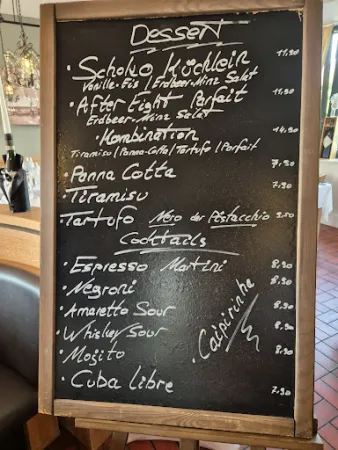 Dessert
· Schoko Küchlein 11,90
Vanille-Eis / Erdbeer-Minz Salat
· After Eight Parfait 11,90
Erdbeer-Minz Salat
· Kombination 14,90
Tiramisu / Panna-Cotta / Tartufo / Parfait
· Panna Cotta 7,90
· Tiramisu 7,90
· Tartufo Nero oder Pistacchio
Cocktails
· Espresso Martini 8,90
· Negroni 8,90
· Amaretto Sour 8,90
· Whiskey Sour 8,90
· Mojito 8,90
· Caipirinha
· Cuba Libre 7,90